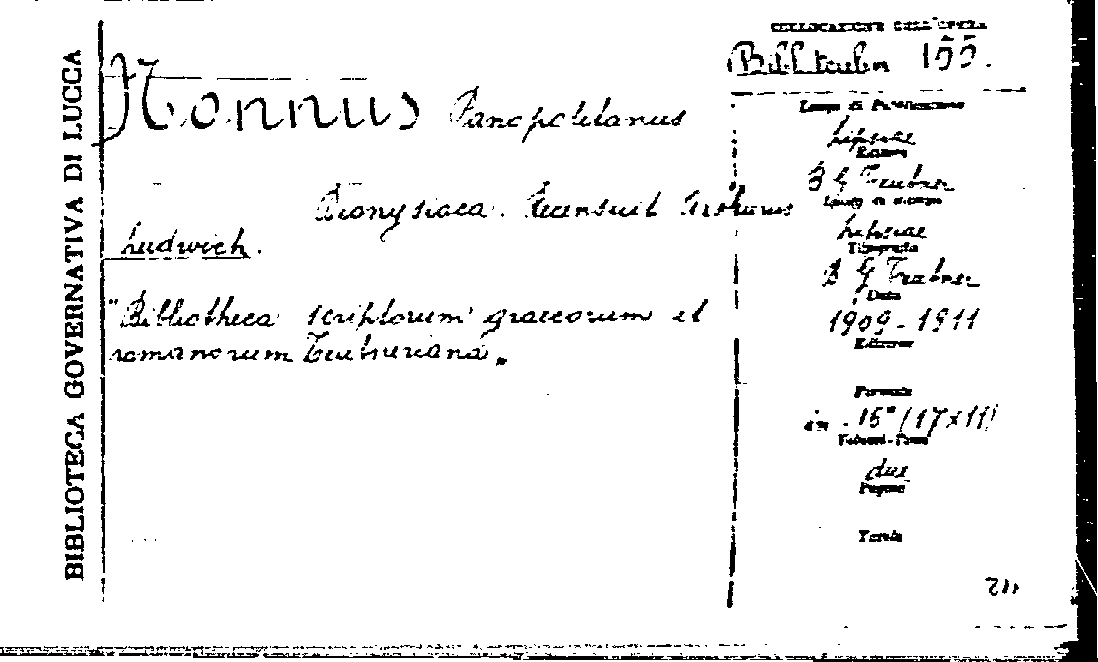 BIBLIOTECA GOVERNATIVA DI LUCCA
Nonnus Panopolitanus
Dionysiaca. Recensuit Arthurus
Ludwich.
"Bibliotheca scriptorum graecorum et
romanorum Teubneriana„
COLLOCAZIONE DELL'OPERA
Bibl. teubn 155.
Luogo di Pubblicazione
Lipsiae
Editore
B G Teubner
Luogo di stampa
Lipsiae
Tipografia
B G Teubner
Data
1909-1911
Edizione
Formato
in-16° (17x11)
Volumi-Tomi
due
Pagine
Tavole